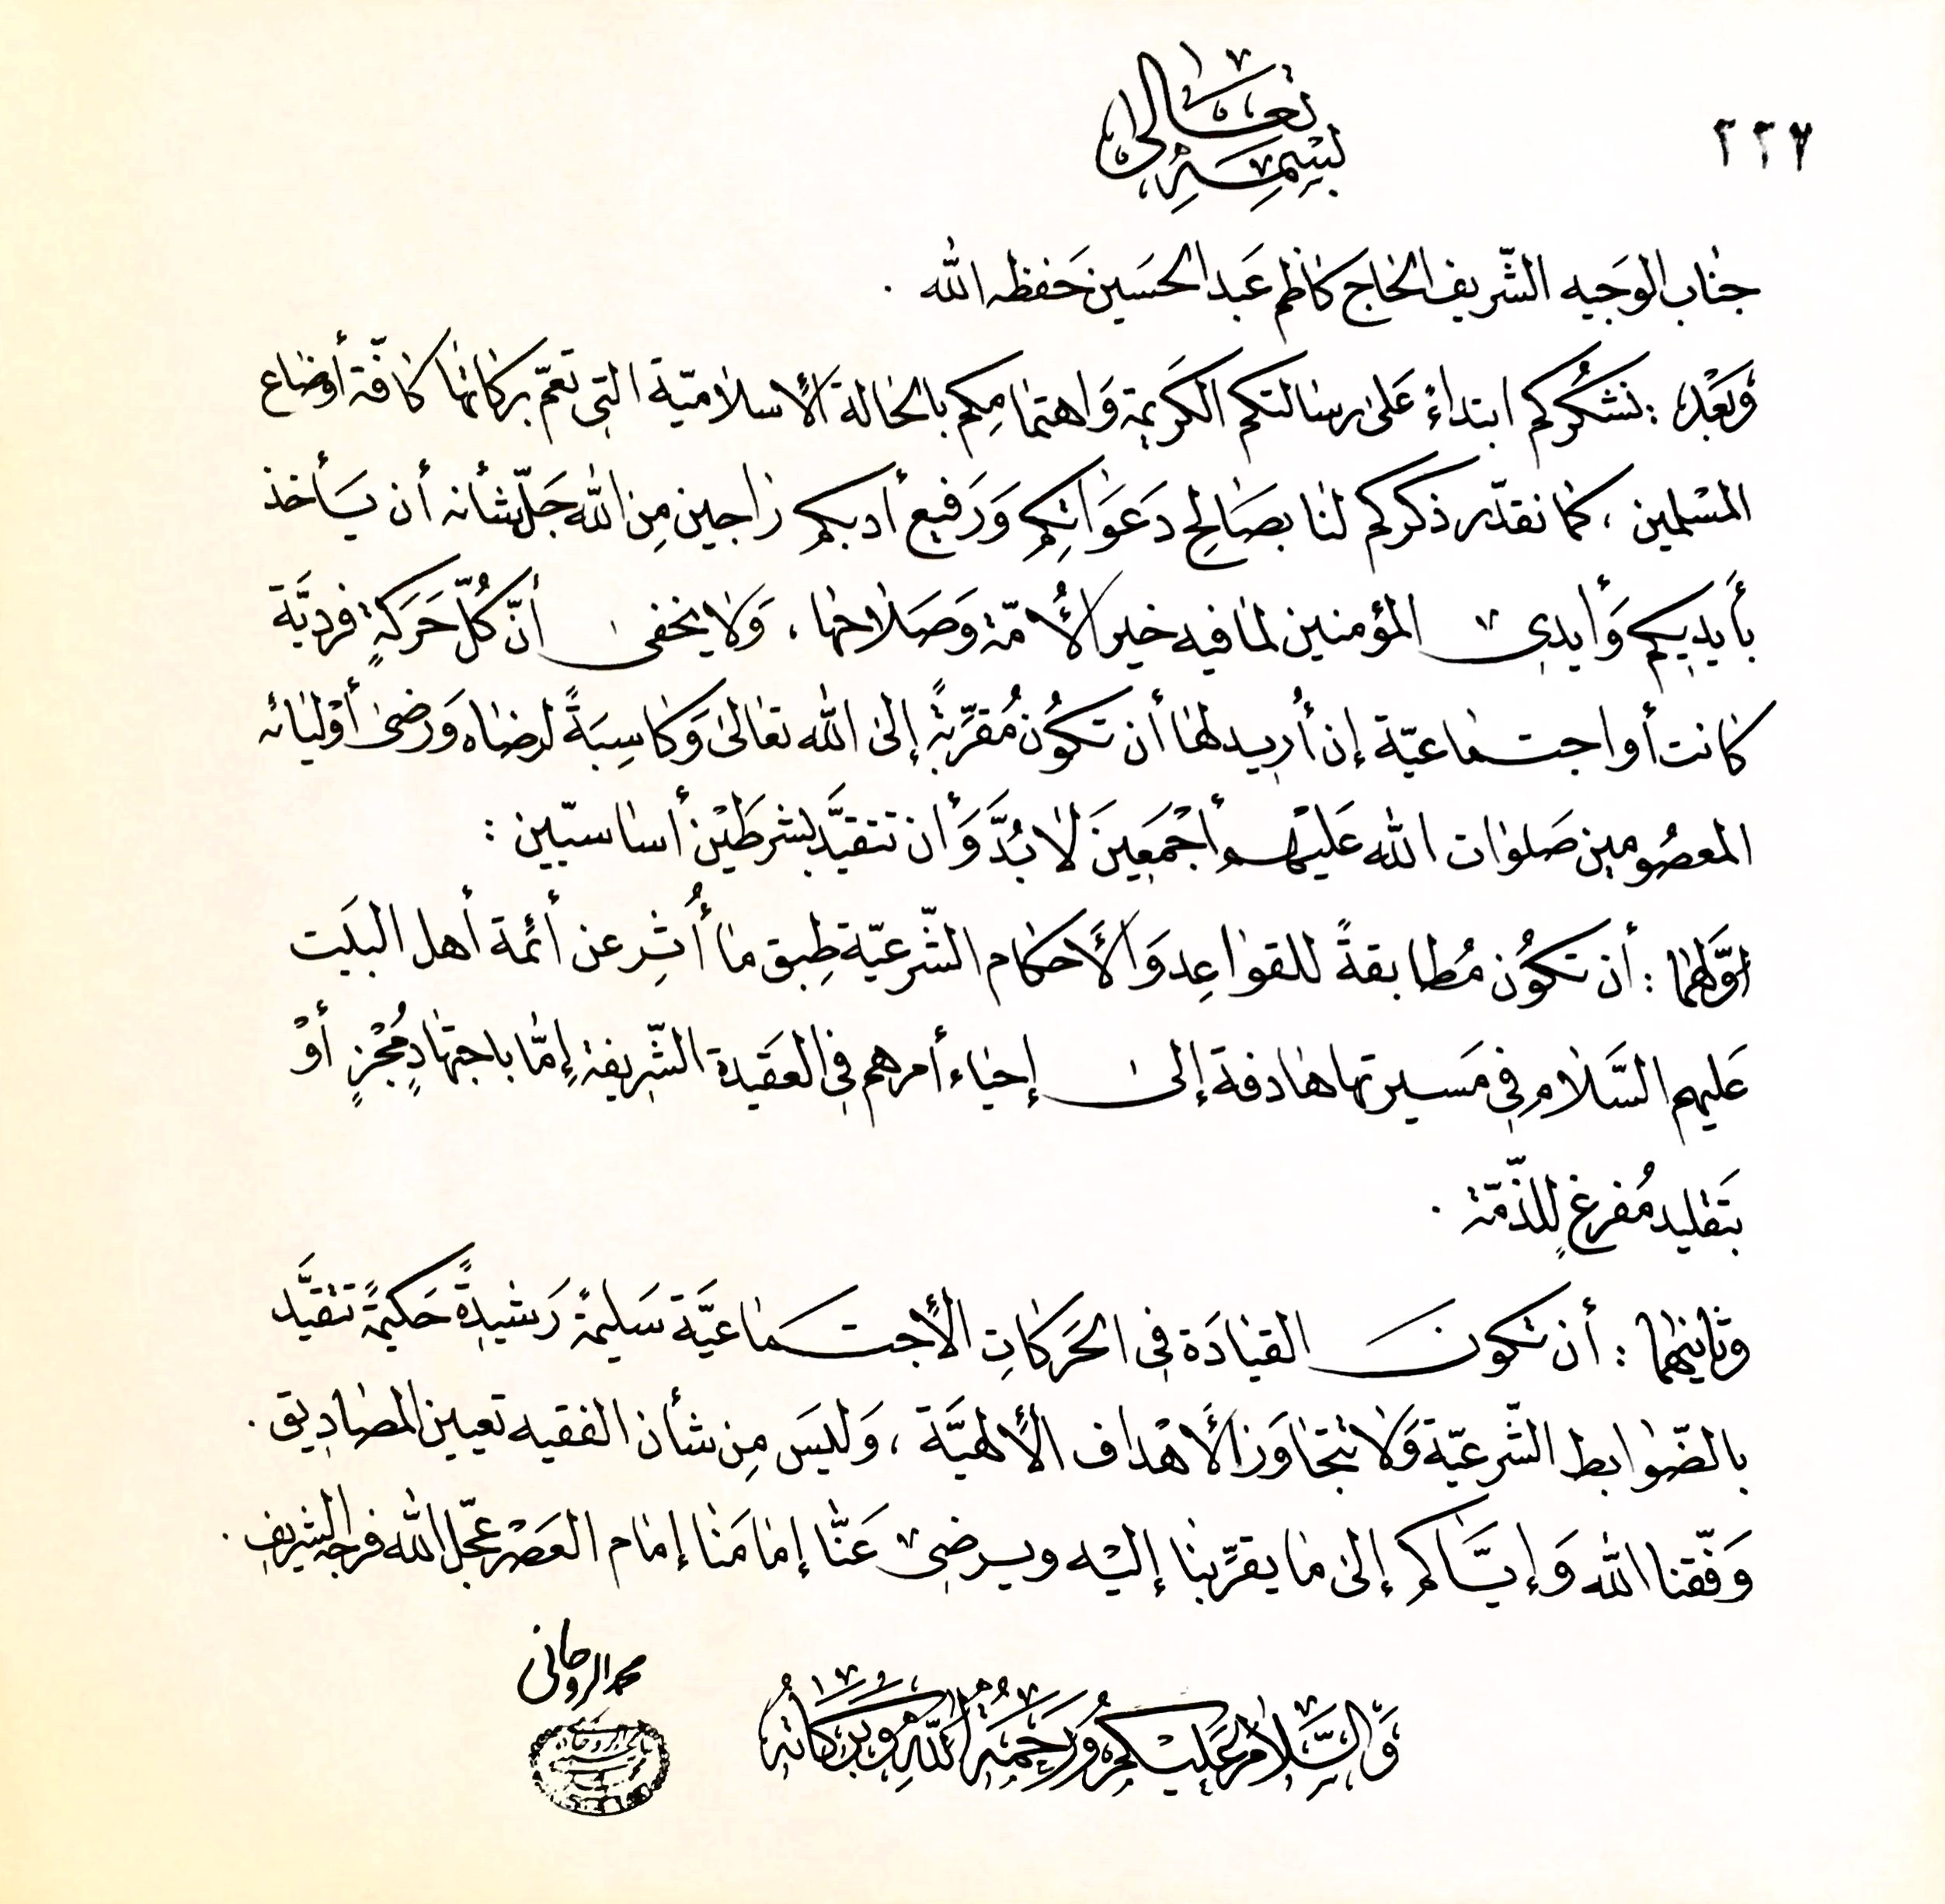 ٢٢٧
بسمه تعالى
جناب الوَجيه الشّريف الحاج كاظم عَبد الحسَين حَفظه الله .
وَبَعْد : نشكُركم ابتداءً عَلىٰ رسالتكم الكَريمة وَاهتمامِكم بالحالة الأسلاميّة التي تعمّ بركاتها كافّة أوضاع
المسْلمين ، كما نقدّر ذكركم لنا بصَالحِ دَعَوَاتِكم وَرَفيع أدبكم راجين مِن الله جَلّ شأنه أن يَأخذ
بأَيديكم وَأيدي المؤمنين لما فيه خير الأُمّة وَصَلاحها ، وَلا يخفى أنّ كُلّ حَرَكةٍ فرديَّة
كانت أو اجتماعيّة إن أُريد لها أن تكُون مُقرِّبةً إلىٰ الله تعالىٰ وَكاسِبَةً لرضاه وَرضىٰ أوْليائه
المعصُومين صَلوات الله عَليْهم أجْمَعِينَ لا بُدَّ وَأن تتقيَّد بشرطَيْن أساسيّين :
اوَّلهما : أن تكُون مُطابقةً للقواعِد وَالأحكام الشّرعيّة طِبق ما أُثِر عن أئمة أهل البيَت
عَليهم السَّلام في مَسيرتها هادفة إلىٰ إحياء أمرهم في العَقَيدة الشّريفة إمّا باجتهادٍ مُجْزٍ أوْ
بتَقليد مُفرغٍ للذّمّة .
وثانيهما : أن تكونَ القيادَة في الحَرَكاتِ الأجتماعيَّة سَليمةً رَشيدةً حَكيمةً تتقيَّد
بالضّوابط الشّرعيّة وَلا تتجاوَز الأَهْداف الألهيَّة ، وَليَس مِن شأن الفقيه تعيين المصاديق .
وَفّقنا الله وَإيَّاكم إلىٰ ما يقرِّبنا إليْه ويرضي عَنّا إمامَنا إمام العَصْر عجّل الله فرجه الشريف .
وَالسَّلامُ عَليْكُم وَرَحْمَةُ اللهِ وَبَرَكاتُهُ
محمد الروحاني